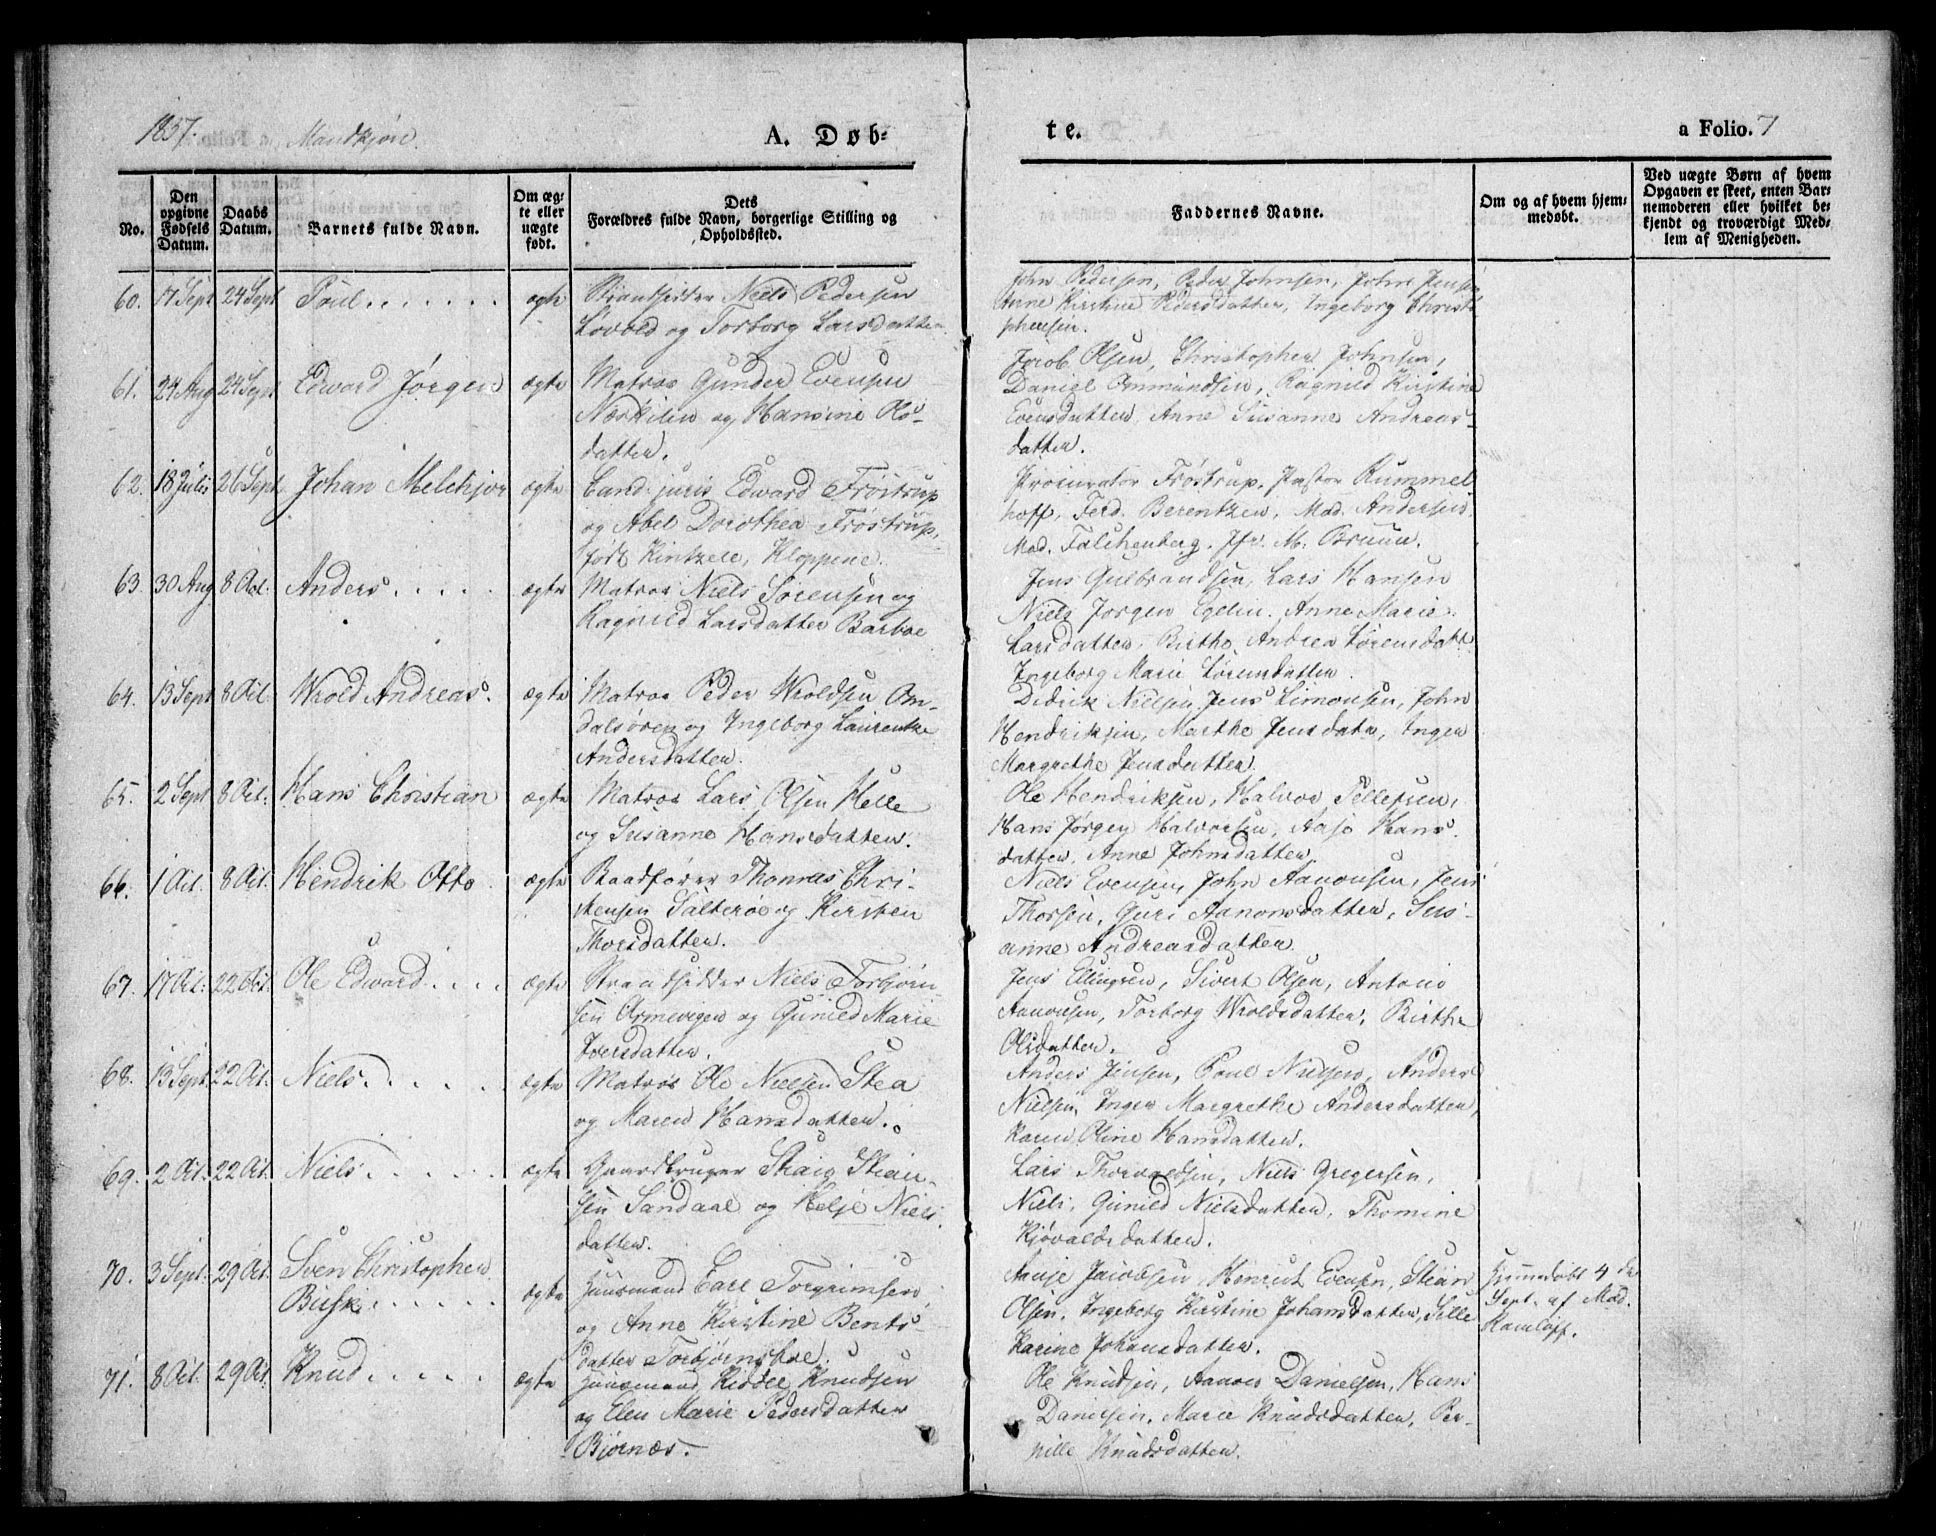 1837. Mandkjøn. A. Døb-
te. a Folio. 7
No.
Den opgivne Fødsels Datum.
Daabs Datum.
Barnets fulde Navn.
Om ægte eller uægte født.
Dets Forældres fulde Navn, borgerlige Stilling og Opholdssted.
Faddernes Navne.
Om og af hvem hjemmedøbt.
Ved uægte Børn af hvem Opgaven er skeet, enten Barnemoderen eller hvilket bekjendt og troværdigt Medlem af Menigheden.
60. 7 Sept 24 Sept Poul ægte Strandsidder Niels Pedersen
Løvold og Torborg Larsdatter
John Pedersen, Peder Johnsen, John Jensen
Anne Kirstine Pedersdatter, Ingeborg Christo
phersen.
61. 24 Aug 24 Sept Edward Jørgen ægte Matros Gunder Evensen
Næskilen og Hansine Ols-
datter.
Jacob Olsen, Christopher Johnsen,
Daniel Ommundsen, Ragnild Kirstine
Evensdatter, Anne Susanne Andreas-
datter
62. 18 Juli 26 Sept Johan Melchjor ægte Cand: juris Edward Frøstrup
og Abel Dorothea Frøstrup,
født Kintzele, Kloppene.
Procurator Frøstrup, Pastor Rummel
hoff, Ferd. Berentzen, Mad. Andersen,
Mad. Falchenberg. Jfr. M. Bruun.
63. 30 Aug 8 Oct. Anders ægte Matros Niels Sørensen og
Ragnild Larsdatter Barboe
Jens Gulbrandsen, Lars Hansen
Niels Jørgen Egelin. Anne Marie
Larsdatter, Birthe Andrea Sørensdatt
Ingeborg Marie Sørensdatter.
64. 13 Sept 8 Oct. Wrold Andreas. ægte Matros Peder Wroldsen Om-
dalsøren og Ingeborg Laurentze
Andersdatter.
Didrik Nielsen, Jens Simonsen, John
Hendriksen, Marthe Jensdatr, Inger
Margrethe Jensdatter.
65. 2 Sept 8 Oct. Hans Christian ægte Matros Lars Olsen Helle
og Susanne Hansdatter.
Ole Hendriksen, Halvor Tellefsen,
Hans Jørgen Halvorsen, Aase Hans
datter, Anne Johnsdatter.
66. 1 Oct. 8 Oct. Hendrik Otto ægte Baadfører Thomas Chri-
stensen Salterøe og Kirsten
Thorsdatter.
Niels Evensen, John Aanonsen, Jens
Thorsen, Guri Aanonsdatter, Sus-
anne Andreasdatter
67. 17 Oct. 22 Oct. Ole Edward ægte Strandsidder Niels Torbjørn
sen Ormevigen og Gunild Marie
Iversdatter.
Jens Ellingsen, Sivert Olsen, Antonio
Aanonsen, Torborg Wroldsdatter, Birthe
Olsdatter.
68. 13 Sept. 22 Oct. Niels ægte Matros Ole Nielsen Stea
og Maren Hansdatter.
Anders Jensen, Poul Nielsen, Anders
Nielsen, Inger Margrethe Andersdatter,
Karen Oline Hansdatter.
69. 2 Oct. 22 Oct. Niels ægte Gaardbruger Staig Stian-
sen Sandaae og Helje Niels
datter.
Lars Thorvaldsen, Niels Gregersen,
Niels, Gunild Nielsdatter, Thomine
Kjøvaldsdatter.
70. 3 Sept. 29 Oct. Sven Christopher
Buski ægte Huusmand Carl Torgrimsen
og Anne Kirstine Bents-
datter Torbjørnsboe.
Aanje Jacobsen, Henrich Evensen, Stian
Olsen, Ingeborg Kirstine Johansdatter, Sille
Karine Johansdatter.
Hjemdøbt 4 de
Sept. af Mad.
71. 8 Oct. 29 Oct. Knud ægte Huusmand Kiddel Knudsen
og Elen Marie Pedersdatter
Bjørnæs.
Ole Knudsen, Aanon Danielsen, Hans
Danielsen, Marie Knudsdatter, Per-
nille Knudsdatter.